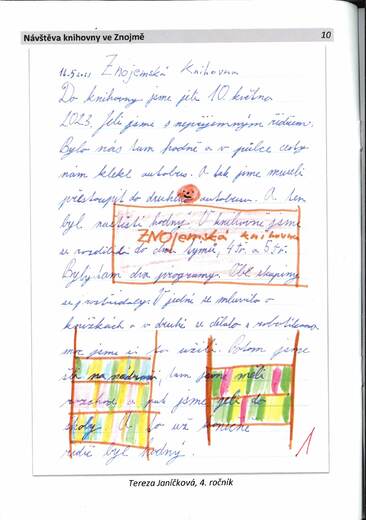 Návštěva knihovny ve Znojmě 10
Znojemská knihovna
Do knihovny jsme jeli 10. května
2023. Jeli jsme s nepříjemným řidičem.
Bylo nás tam hodně a v půlce cesty
nám klekl autobus. A tak jsme museli
přestoupit do druhého autobusu. A ten
byl naštěstí hodný. V knihovně jsme
ZNOJemská knihovna
se rozdělili do dvou týmů, 4. tř. a 5. tř.
Byly tam dva programy. Obě skupiny
se prostřídaly. V jedné se mluvilo o
knížkách a v druhé se dělalo s robotikou
moc jsme si to užili. Potom jsme
šli na nádraží, tam jsme měli
rozchod a pak jsme jeli do
školy. A to už konečně
řidič byl hodný.
1
Tereza Janíčková, 4. ročník